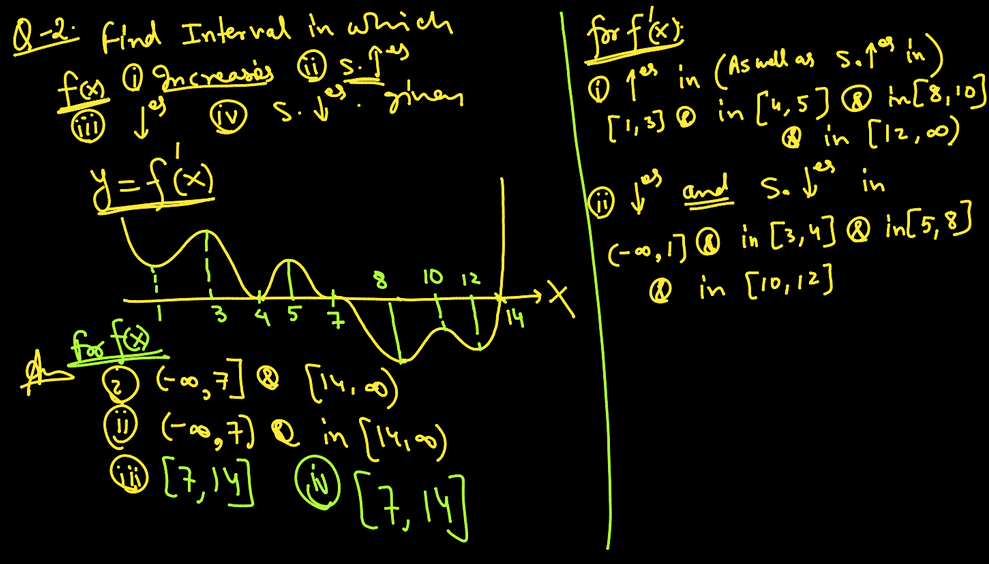 Q-2. Find Interval in which
f(x) (i) Increases (ii) S.↑es
(iii) ↓es (iv) S.↓es. given
y = f'(x)
8 10 12 X
1 3 4 5 7 14
for f(x)
Ans (i) (-∞, 7] & [14, ∞)
(ii) (-∞, 7] & in [14, ∞)
(iii) [7, 14] (iv) [7, 14]
for f'(x):
(i) ↑es in (As well as S.↑es in)
[1, 3] & in [4, 5] & in [8, 10]
& in [12, ∞)
(ii) ↓es and S.↓es in
(-∞, 1] & in [3, 4] & in [5, 8]
& in [10, 12]